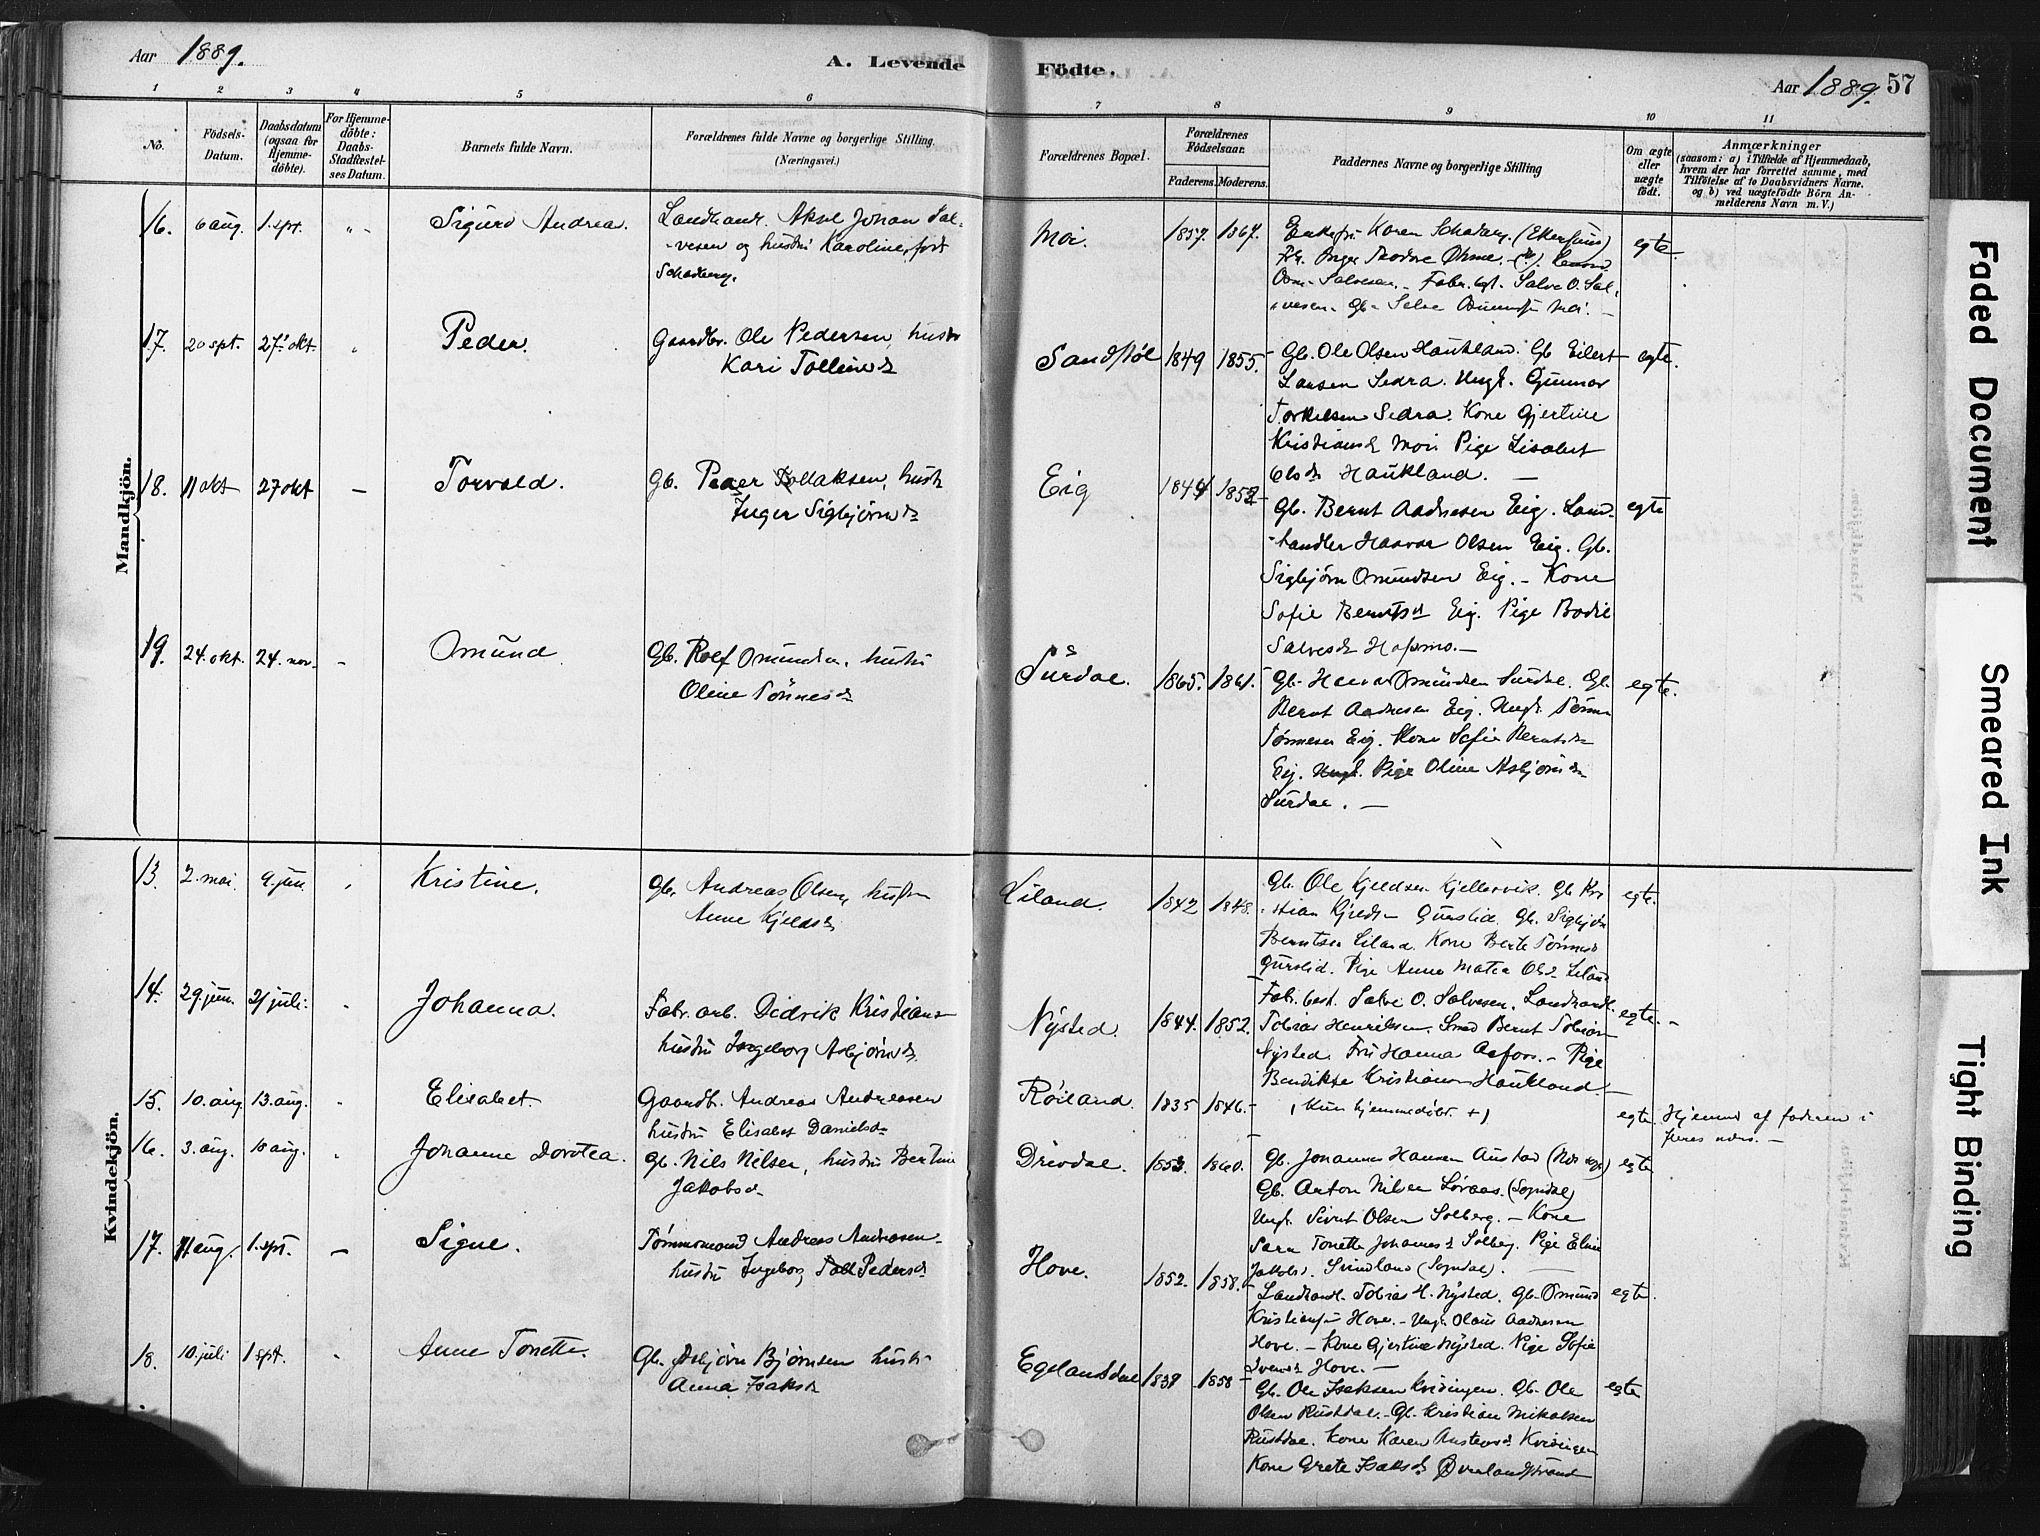 Aar 1889.
A. Levende
Födte.
Aar 1889. 57
1 2 3 4 5 6 7 8 9 10 11
No.
Födsels-
Datum.
Daabsdatum
(ogsaa for
Hjemme-
döbte).
For Hjemme-
döbte:
Daabs-
Stadfæstel-
ses Datum.
Barnets fulde Navn.
Forældrenes fulde Navne og borgerlige Stilling
(Næringsvei.)
Forældrenes Bopæl.
Forældrenes
Födselsaar.
Faderens. Moderens.
Faddernes Navne og borgerlige Stilling
Om ægte
eller
uægte
födt.
Anmærkninger
(saasom: a) i Tilfælde af Hjemmedaab,
hvem der har forrettet samme, med
Tilföielse af to Daabsvidners Navne,
og b) ved uægtefödte Börn An-
melderens Navn m. V.)
Mandkjön.
16. 6 aug. 1. spt. Sigurd Andrea.
Landhand. Aksel Johan Sal-
vesen og hustru Karoline, født
Schadberg.
Moi. 1857. 1867.
Enkefru Karen Schadberg. (Ekersund)
egte.
17. 20 spt. 27 okt. Peder.
Gaardbr. Ole Pedersen, hustr
Kari Tollinsd
Sandstøl 1849 1855.
Gb. Ole Olsen Haukland. Gb Eilert
Larsen Sedra. Ungk. Gunnar
Torkelsen Sedra. Kone Gjertine
Kristiansd Moi Pige Lisabet
Olsd Haukland. —
egte.
18. 11 okt 27 okt — Torvald.
Gb. Peder Tollaksen, hustr
Inger Sigbjørnsd
Eig 1844 1852
Gb. Bernt Aadnesen Eig. Land-
handler Haavar Olsen Eig. Gb.
Sigbjørn Omundsen Eig. — Kone
Sofie Berntsd Eig. Pige Bodil
Salvesd Hapmo. —
egte
19. 24. okt. 24. nov. — Omund.
Gb. Rolf Omundsen, hustru
Oline Tönnesd
Surdal. 1865. 1861.
Gb. Haavar Omundsen Surdal. Gb.
Bernt Aadnesen Eig. Ungk. Tönnes
Tønnesen Eig. Kone Sofie Berntsd
Eig. Pige Oline Asbjørnsd
Surdal. —
egte.
Kvindekjön.
13. 2. mai. 9. jun. Kristine.
Gb. Andreas Olsen, hustru
Anne Kjeldsd
Liland. 1842 1848.
Gb. Ole Kjeldsen Kjellervik. Gb Kri-
stian Kjeldsen Gurslid. Gb. Sigbjørn
Berntsen Liland. Kone Berte Tönnesd
Gurslid. Pige Anne Matea Olsd Liland
egte.
14. 29. jun. 21 juli. Johanna.
Fabr. arb. Didrik Kristians
hustru Ingeborg Asbjørnsd.
Nysted. 1844. 1852.
Fabr. best. Salve O. Salvesen. Landhandl.
Tobias Henriksen. Smed Bernt Tobias
Nysted. Fru Hanna Aafoss. — Pige
Bendikte Kristians Haukland. —
egte. —
15. 10. aug. 13. aug. Elisabet.
Gaardb. Andreas Andreasen
hustru Elisabet Danielsd.
Røiland. 1835 1846.
(Kun hjemmedøbt. +)
egte. Hjemmed af faderen i
16. 3. aug. 18 aug. Johanne Dorotea.
Gb. Nils Nilsen, hustru Bertine
Jakobsd.
Drivdal. 1853. 1860.
Gb. Johannes Hansen Austad
Gb. Anton Nilsen Løvaas. (Sogndal)
Ungk. Sivert Olsen Solberg. — Kone
Sara Tonette Johannesd Solberg. Pige Eline
Jakobsd. Svindland (Sogndal). —
egte
17. 11 aug. 1. spt. — Signe.
Tømmermand Andreas Andreasen
hustru Ingeborg Pedersd.
Hove. 1852. 1858.
Landhandl. Tobias H. Nysted. Gb. Omund
Kristiansen Hove. — Ungk. Olaus Aadnesen
Hove. — Kone Gjertine Nysted. Pige Sofie
Svensd Hove. —
egte.
18. 10. juli 1 spt. Anne Tonette.
Gb. Asbjørn Bjørnsen hustru
Anna Isaksd
Egelandsdal 1839 1858
Gb. Ole Isaksen Kvidingen. Gb. Ole
Olsen Rustdal. — Gb. Kristian Mikalsen
Rustdal. Kone Karen Austensd Kvidingen
Kone Grete Isaksd Øvrlandstrand
egte
Faded Document
Smeared Ink
Tight Binding